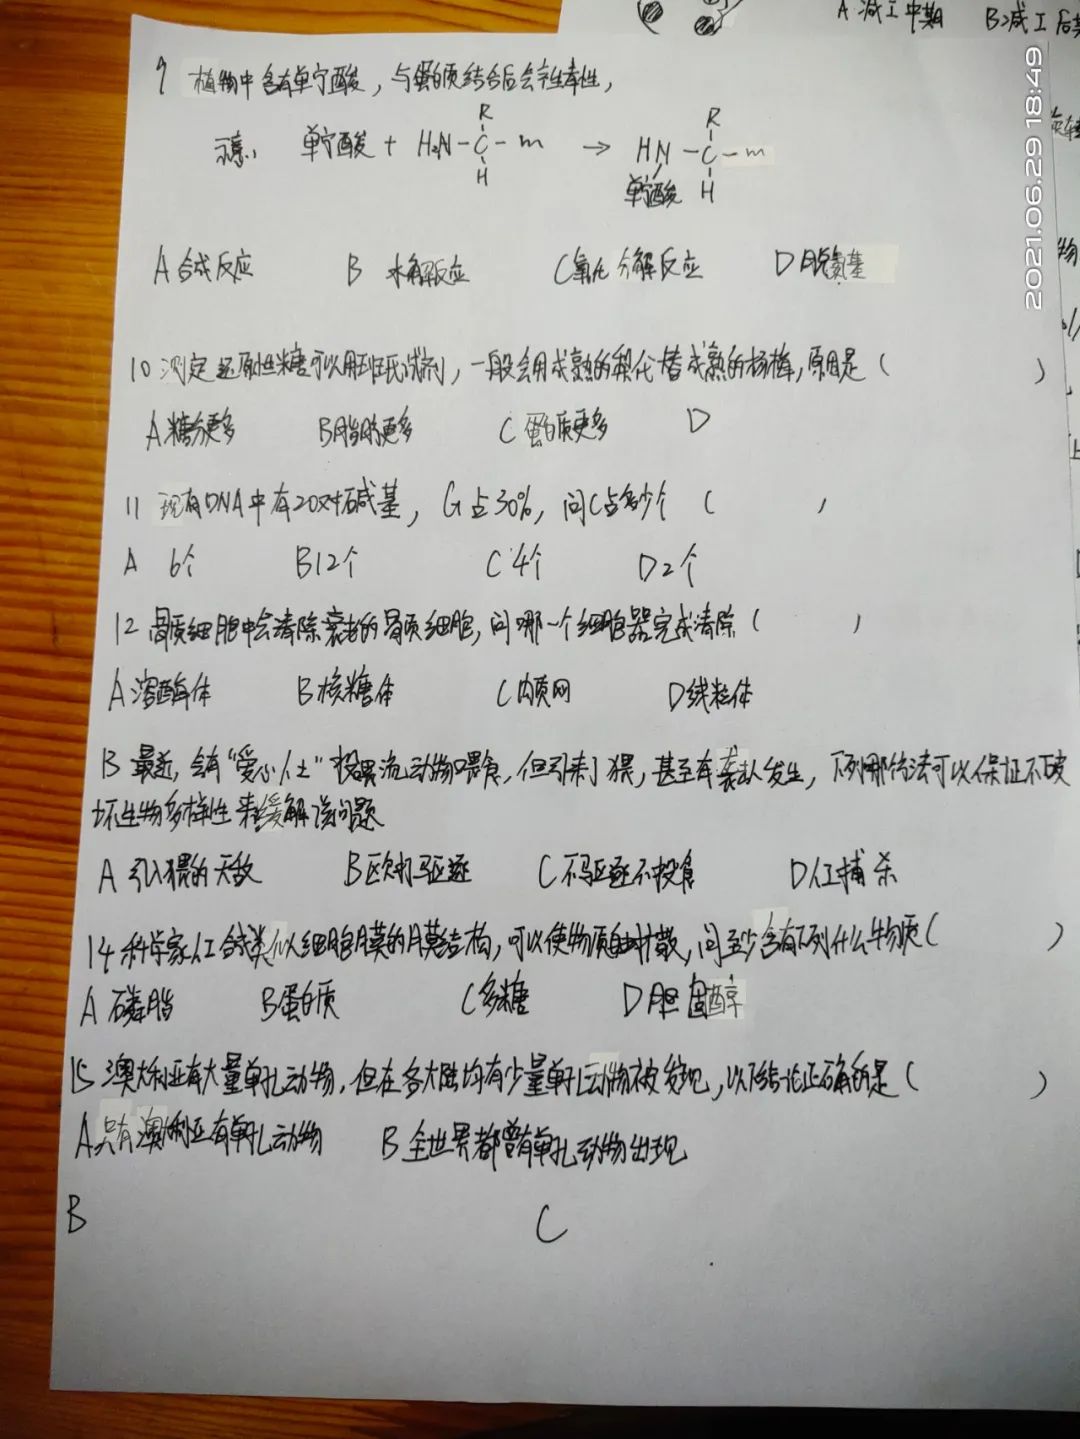 A 减I中期 B减I后
9 植物中含有单宁酸，与蛋白质结合后会产生毒性，
单宁酸 + H2N-C-m → HN-C-m
R
H
单宁酸
R
H
A 合成反应 B 水解反应 C氧化分解反应 D脱氨基
10 测定还原性糖可以用班氏试剂，一般会用成熟的梨代替成熟的杨梅，原因是（ ）
A糖分更多 B脂肪更多 C 蛋白质更多 D
11 现有DNA中有20对碱基，G占30%，问C占多少个（ ）
A 6个 B12个 C 4个 D2个
12 骨质细胞中会清除衰老的骨质细胞，问哪一个细胞器完成清除（ ）
A溶酶体 B核糖体 C内质网 D线粒体
13 最近，会有“爱心人士”投喂流动物喂食，但引来了猥，甚至有袭人发生，下列哪个做法可以保证不破
坏生物多样性来缓解该问题
A 引入猥的天敌 B区别驱逐 C不驱逐不投食 D人工捕杀
14 科学家人工合成类似细胞膜的膜结构，可以使物质自由扩散，问至少含有下列什么物质（ ）
A 磷脂 B蛋白质 C多糖 D胆固醇
15 澳大利亚有大量单孔动物，但在各大陆均有少量单孔动物被发现，以下结论正确的是（ ）
A只有澳大利亚有单孔动物 B 全世界都曾有单孔动物出现
B C
2021.06.29 18:49